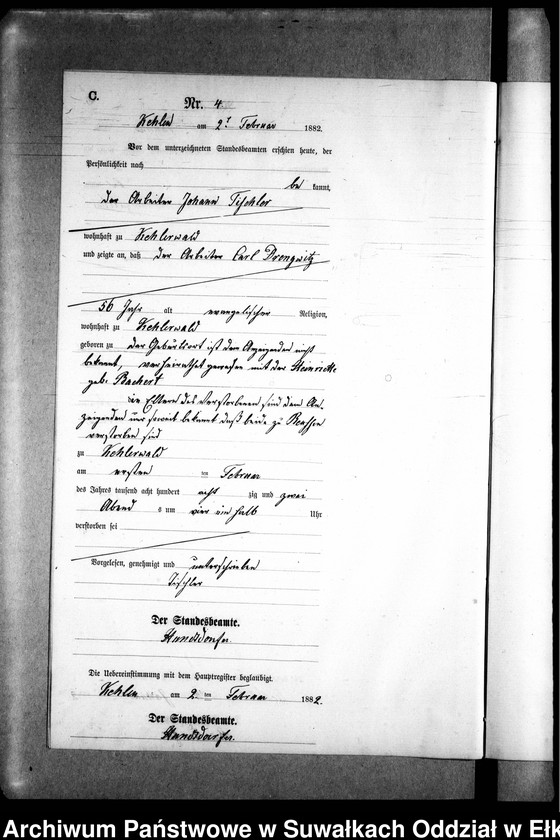 C.
Nr. 4
Kehlen am 2t Februar 1882.
Vor dem unterzeichneten Standesbeamten erschien heute, der
Persönlichkeit nach
be kannt,
der Arbeiter Johann Tischler
wohnhaft zu Kehlerwald
und zeigte an, daß der Arbeiter Carl Drongwitz
56 Jahr alt evangelischer Religion,
wohnhaft zu Kehlerwald
geboren zu der Geburtsort ist dem Anzeigenden nicht
bekannt, verheirathet gewesen mit der Heinriette
geb. Backert
die Eltern des Verstorbenen sind dem An-
zeigenden nur soweit bekannt daß beide zu
verstorben sind
zu Kehlerwald
am ersten ten Februar
des Jahres tausend acht hundert acht zig und zwei
Abend s um vier ein halb Uhr
verstorben sei
Vorgelesen, genehmigt und unterschrieben
Tischler
Der Standesbeamte.
Die Uebereinstimmung mit dem Hauptregister beglaubigt.
Kehlen am 2. ten Februar 1882.
Der Standesbeamte.
Archiwum Państwowe w Suwałkach Oddział w Ełk